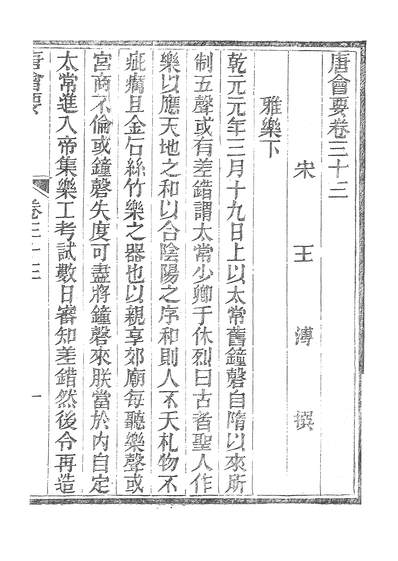 唐會要卷三十三
宋王溥撰
雅樂下
乾元元年三月十九日上以太常舊鐘磬自隋以來所
制五聲或有差錯謂太常少卿于休烈曰古者聖人作
樂以應天地之和以合陰陽之序和則人不夭札物不
疵癘且金石絲竹樂之器也以親享郊廟每聽樂聲或
宮商不倫或鐘磬失度可盡將鐘磬來朕當於內自定
太常進入帝集樂工考試數日審知差錯然後令再造
唐會要
卷三十三
一